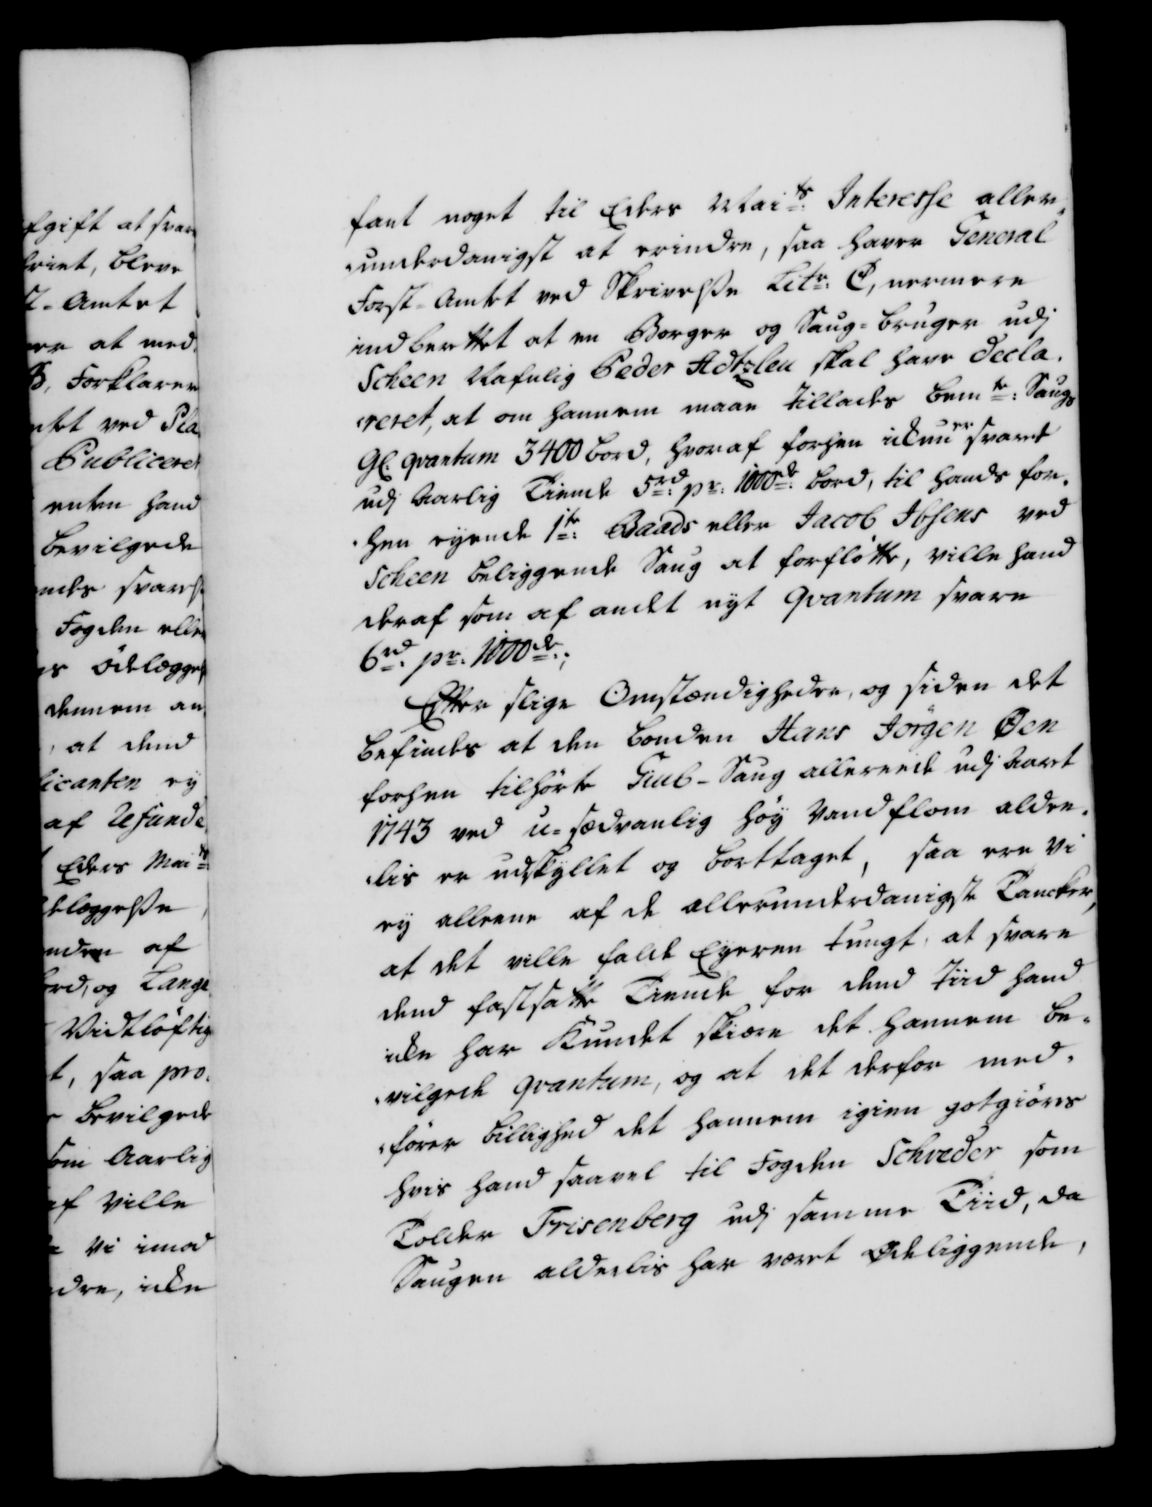 fgift at svar
bleve
t-Amtet
at med
Forklarer
ved Pla
Publiceret
enten hand
bevilgede
svare
Fogden elle
Ödelægge
dennem an
at dend
licanten ey
af Refunde
Eders Mai
elæggelse
af
ord, og Lange
Vidtløftig
t, saa pro
bevilgede
som Aarlig
af ville
Vi imod
ndre, icke
fant noget til Eders Maits Interesse aller-
underdanigst at erindre, saa haver General
Forst-Amtet ved Skrivelse Litr: C, nermere
indberettet at en Borger og Saug-bruger udj
Scheen Nafnlig Peder skal have decla-
reret, at om hannem maae tillades bemte: Saugs
Gl. qvantum 3400 bord, hvoraf forhen ickun er svaret
udj Aarlig Tiende 5rd: pr: 1000de: bord, til hands for-
hen eyende 1te: Baads eller Jacob Ibsens ved
Scheen beliggende Saug at forflötte, ville hand
deraf som af andet nyt Qvantum svare
6rd: pr. 1000de:;
Efter slige Omstændigheder, og siden det
befindes at den bonden Hans Jörgen Øen
forhen tilhørte Saug allereede udj Aaret
1743 ved u-sædvanlig høy Vandflom alde-
lis er udskyllet og borttaget, saa ere Vi
ey alleene af de allerunderdanigste Tancker,
at det ville falde Eyeren tungt, at svare
dend fastsatte Tiende for dend Tiid hand
icke har Kundet skiære det hannem be-
vilgede qvantum, og at det derfor med-
förer billighed det hannem igien gotgiöres
hvis hand saavel til Fogden Schrøder som
Tolder Frisenberg udj samme Tiid, da
Saugen aldelis har været Ødeliggende,